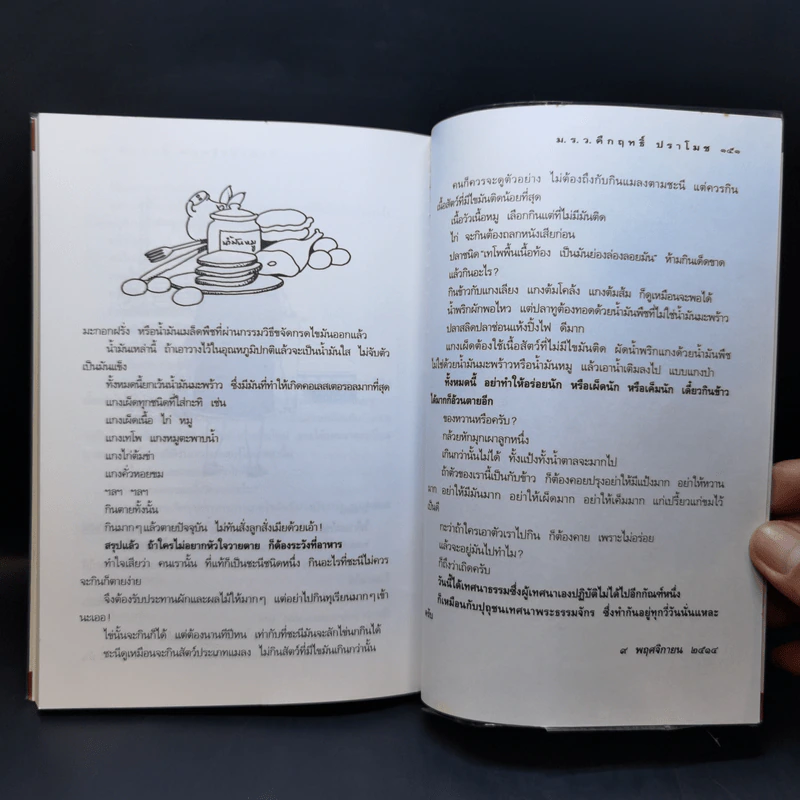 น้ำมันหมู
มะกอกฝรั่ง หรือน้ำมันเมล็ดพืชที่ผ่านกรรมวิธีขจัดกรดไขมันออกแล้ว
น้ำมันเหล่านี้ ถ้าเอาวางไว้ในอุณหภูมิปกติแล้วจะเป็นน้ำมันใส ไม่จับตัว
เป็นมันแข็ง
ทั้งหมดนี้ยกเว้นน้ำมันมะพร้าว ซึ่งมีมันที่ทำให้เกิดคอเลสเตอรอลมากที่สุด
แกงเผ็ดทุกชนิดที่ใส่กะทิ เช่น
แกงเผ็ดเนื้อ ไก่ หมู
แกงเทโพ แกงหมูตะพาบน้ำ
แกงไก่ต้มข่า
แกงคั่วหอยขม
ฯลฯ ฯลฯ
กินตายทั้งนั้น
กินมากๆแล้วตายปัจจุบัน ไม่ทันสั่งลูกสั่งเมียด้วยเอ้า!
สรุปแล้ว ถ้าใครไม่อยากหัวใจวายตาย ก็ต้องระวังที่อาหาร
ทำใจเสียว่า คนเรานั้น ที่แท้ก็เป็นชะนีชนิดหนึ่ง กินอะไรที่ชะนีไม่ควร
จะกินก็ตายง่าย
จึงต้องรับประทานผักและผลไม้ให้มากๆ แต่อย่าไปกินทุเรียนมากๆเข้า
นะเออ!
ไข่นั้นจะกินก็ได้ แต่ต้องนานทีปีหน เท่ากับที่ชะนีมันจะลักไข่นกกินได้
ชะนีดูเหมือนจะกินสัตว์ประเภทแมลง ไม่กินสัตว์ที่มีไขมันเกินกว่านั้น
ม.ร.ว.คึกฤทธิ์ ปราโมช ๑๕๑
คนก็ควรจะดูตัวอย่าง ไม่ต้องถึงกับกินแมลงตามชะนี แต่ควรกิน
เนื้อสัตว์ที่มีไขมันติดน้อยที่สุด
เนื้อวัวเนื้อหมู เลือกกินแต่ที่ไม่มีมันติด
ไก่ จะกินต้องถลกหนังเสียก่อน
ปลาชนิด "เทโพพื้นเนื้อท้อง เป็นมันย่องล่องลอยมัน" ห้ามกินเด็ดขาด
แล้วกินอะไร?
กินข้าวกับแกงเลียง แกงต้มโคล้ง แกงต้มส้ม ก็ดูเหมือนจะพอได้
น้ำพริกผักพอไหว แต่ปลาทูต้องทอดด้วยน้ำมันพืชที่ไม่ใช่น้ำมันมะพร้าว
ปลาสลิดปลาช่อนแห้งปิ้งไฟ ดีมาก
แกงเผ็ดต้องใช้เนื้อสัตว์ที่ไม่มีไขมันติด ผัดน้ำพริกแกงด้วยน้ำมันพืช
ไม่ใช่ด้วยน้ำมันมะพร้าวหรือน้ำมันหมู แล้วเอาน้ำเติมลงไป แบบแกงป่า
ทั้งหมดนี้ อย่าทำให้อร่อยนัก หรือเผ็ดนัก หรือเค็มนัก เดี๋ยวกินข้าว
ได้มากก็อ้วนตายอีก
ของหวานหรือครับ?
กล้วยหักมุกเผาลูกหนึ่ง
เกินกว่านั้นไม่ได้ ทั้งแป้งทั้งน้ำตาลจะมากไป
ถ้าตัวของเรานี้เป็นกับข้าว ก็ต้องคอยปรุงอย่าให้มีแป้งมาก อย่าให้หวาน
มาก อย่าให้มีมันมาก อย่าให้เผ็ดมาก อย่าให้เค็มมาก แก่เปรี้ยวแก่ขมไว้
เป็นดี
กะว่าถ้าใครเอาตัวเราไปกิน ก็ต้องคาย เพราะไม่อร่อย
แล้วจะอยู่มันไปทำไม?
ก็ถึงว่าเถิดครับ
วันนี้ได้เทศนาธรรมซึ่งผู้เทศนาเองปฏิบัติไม่ได้ไปอีกกัณฑ์หนึ่ง
ก็เหมือนกับปุถุชนเทศนาพระธรรมจักร ซึ่งทำกันอยู่ทุกวี่วันนั่นแหละ
ครับ
๙ พฤศจิกายน ๒๕๑๔